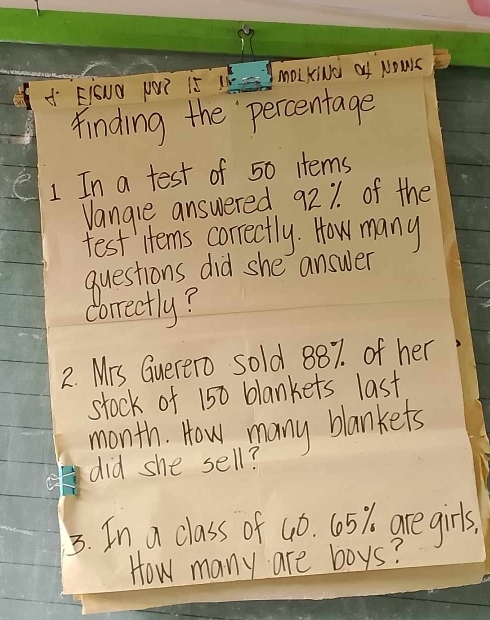 Finding the percentage
1 In a test of 50 items
Vangie answered 92% of the
test items correctly. How many
questions did she answer
correctly?
2. Mrs Guerero sold 88% of her
stock of 150 blankets last
month. How many blankets
did she sell?
3. In a class of 60. 65% are girls.
How many are boys?